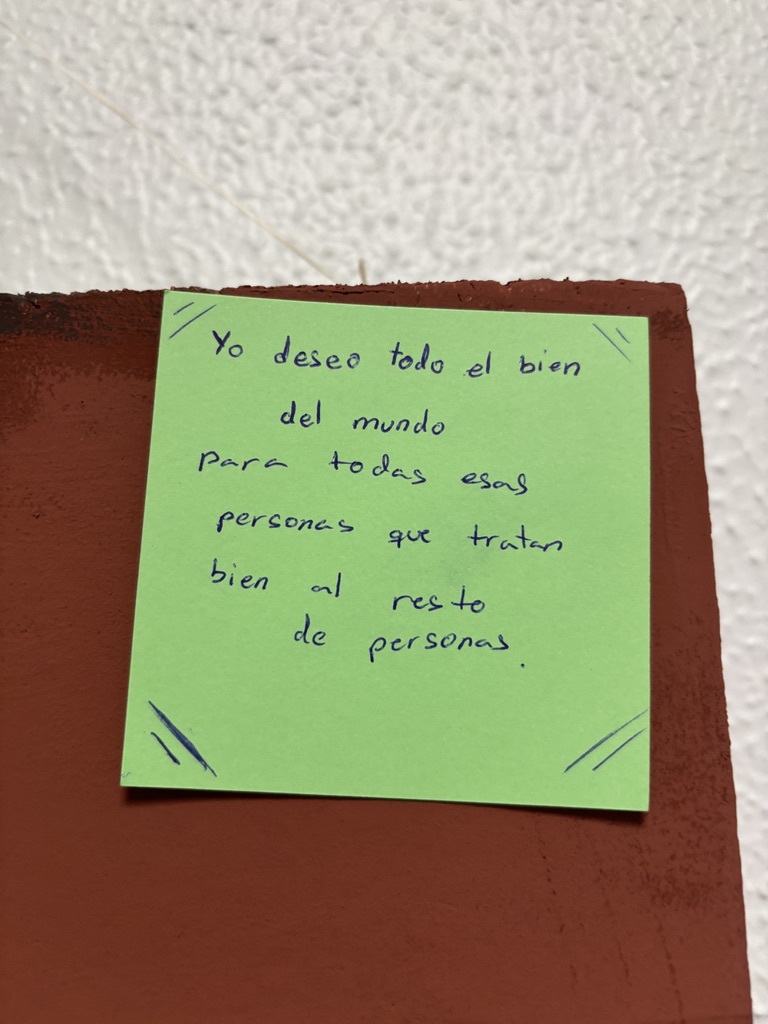 Yo deseo todo el bien
del mundo
para todas esas
personas que tratan
bien al resto
de personas.